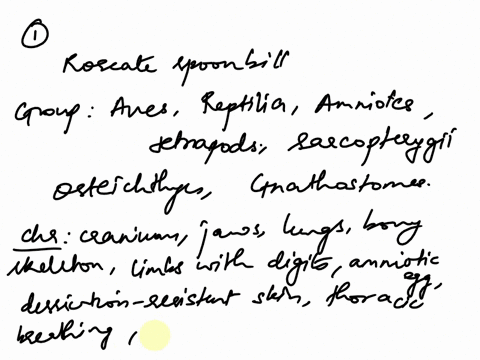 ①
Roseate spoonbill
Group: Aves, Reptilia, Amniotes,
tetrapods, Sarcopterygii
Osteichthyes, Gnathastomes.
chr: cranium, jaws, lungs, bony
skeleton, limbs with digits, amniotic
egg,
dessication-resistant skin, thoracic
breathing,